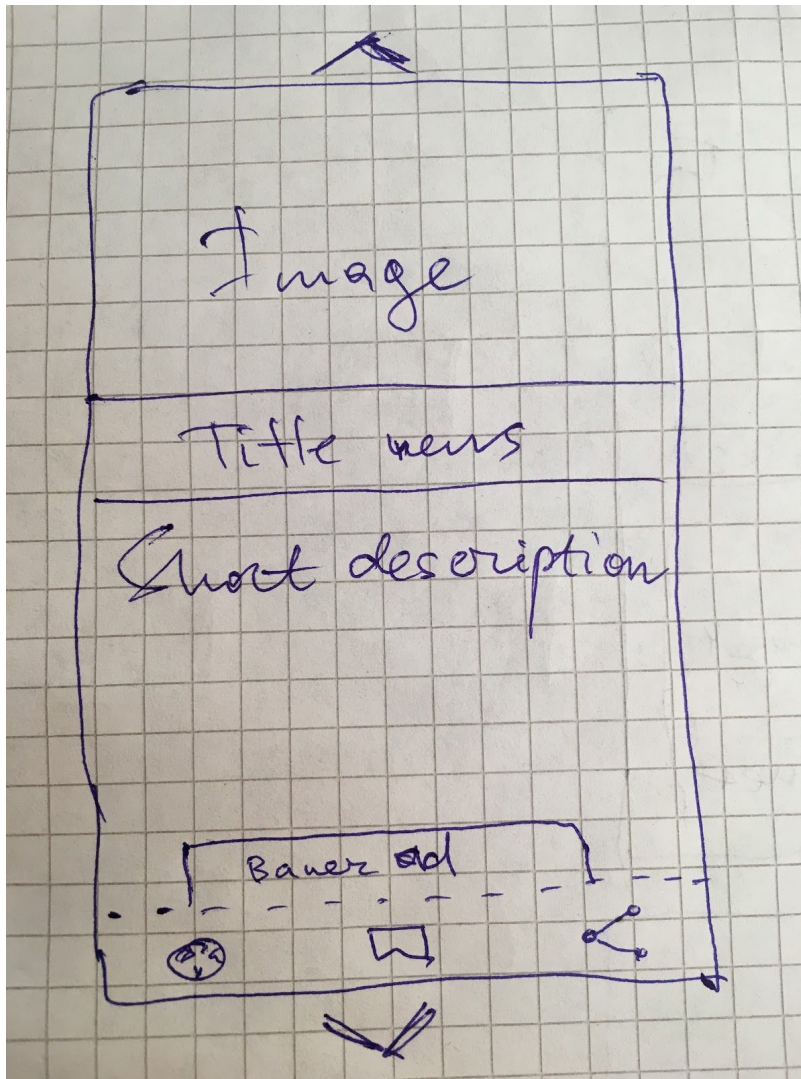 Image
Title news
Short description
Baner ad